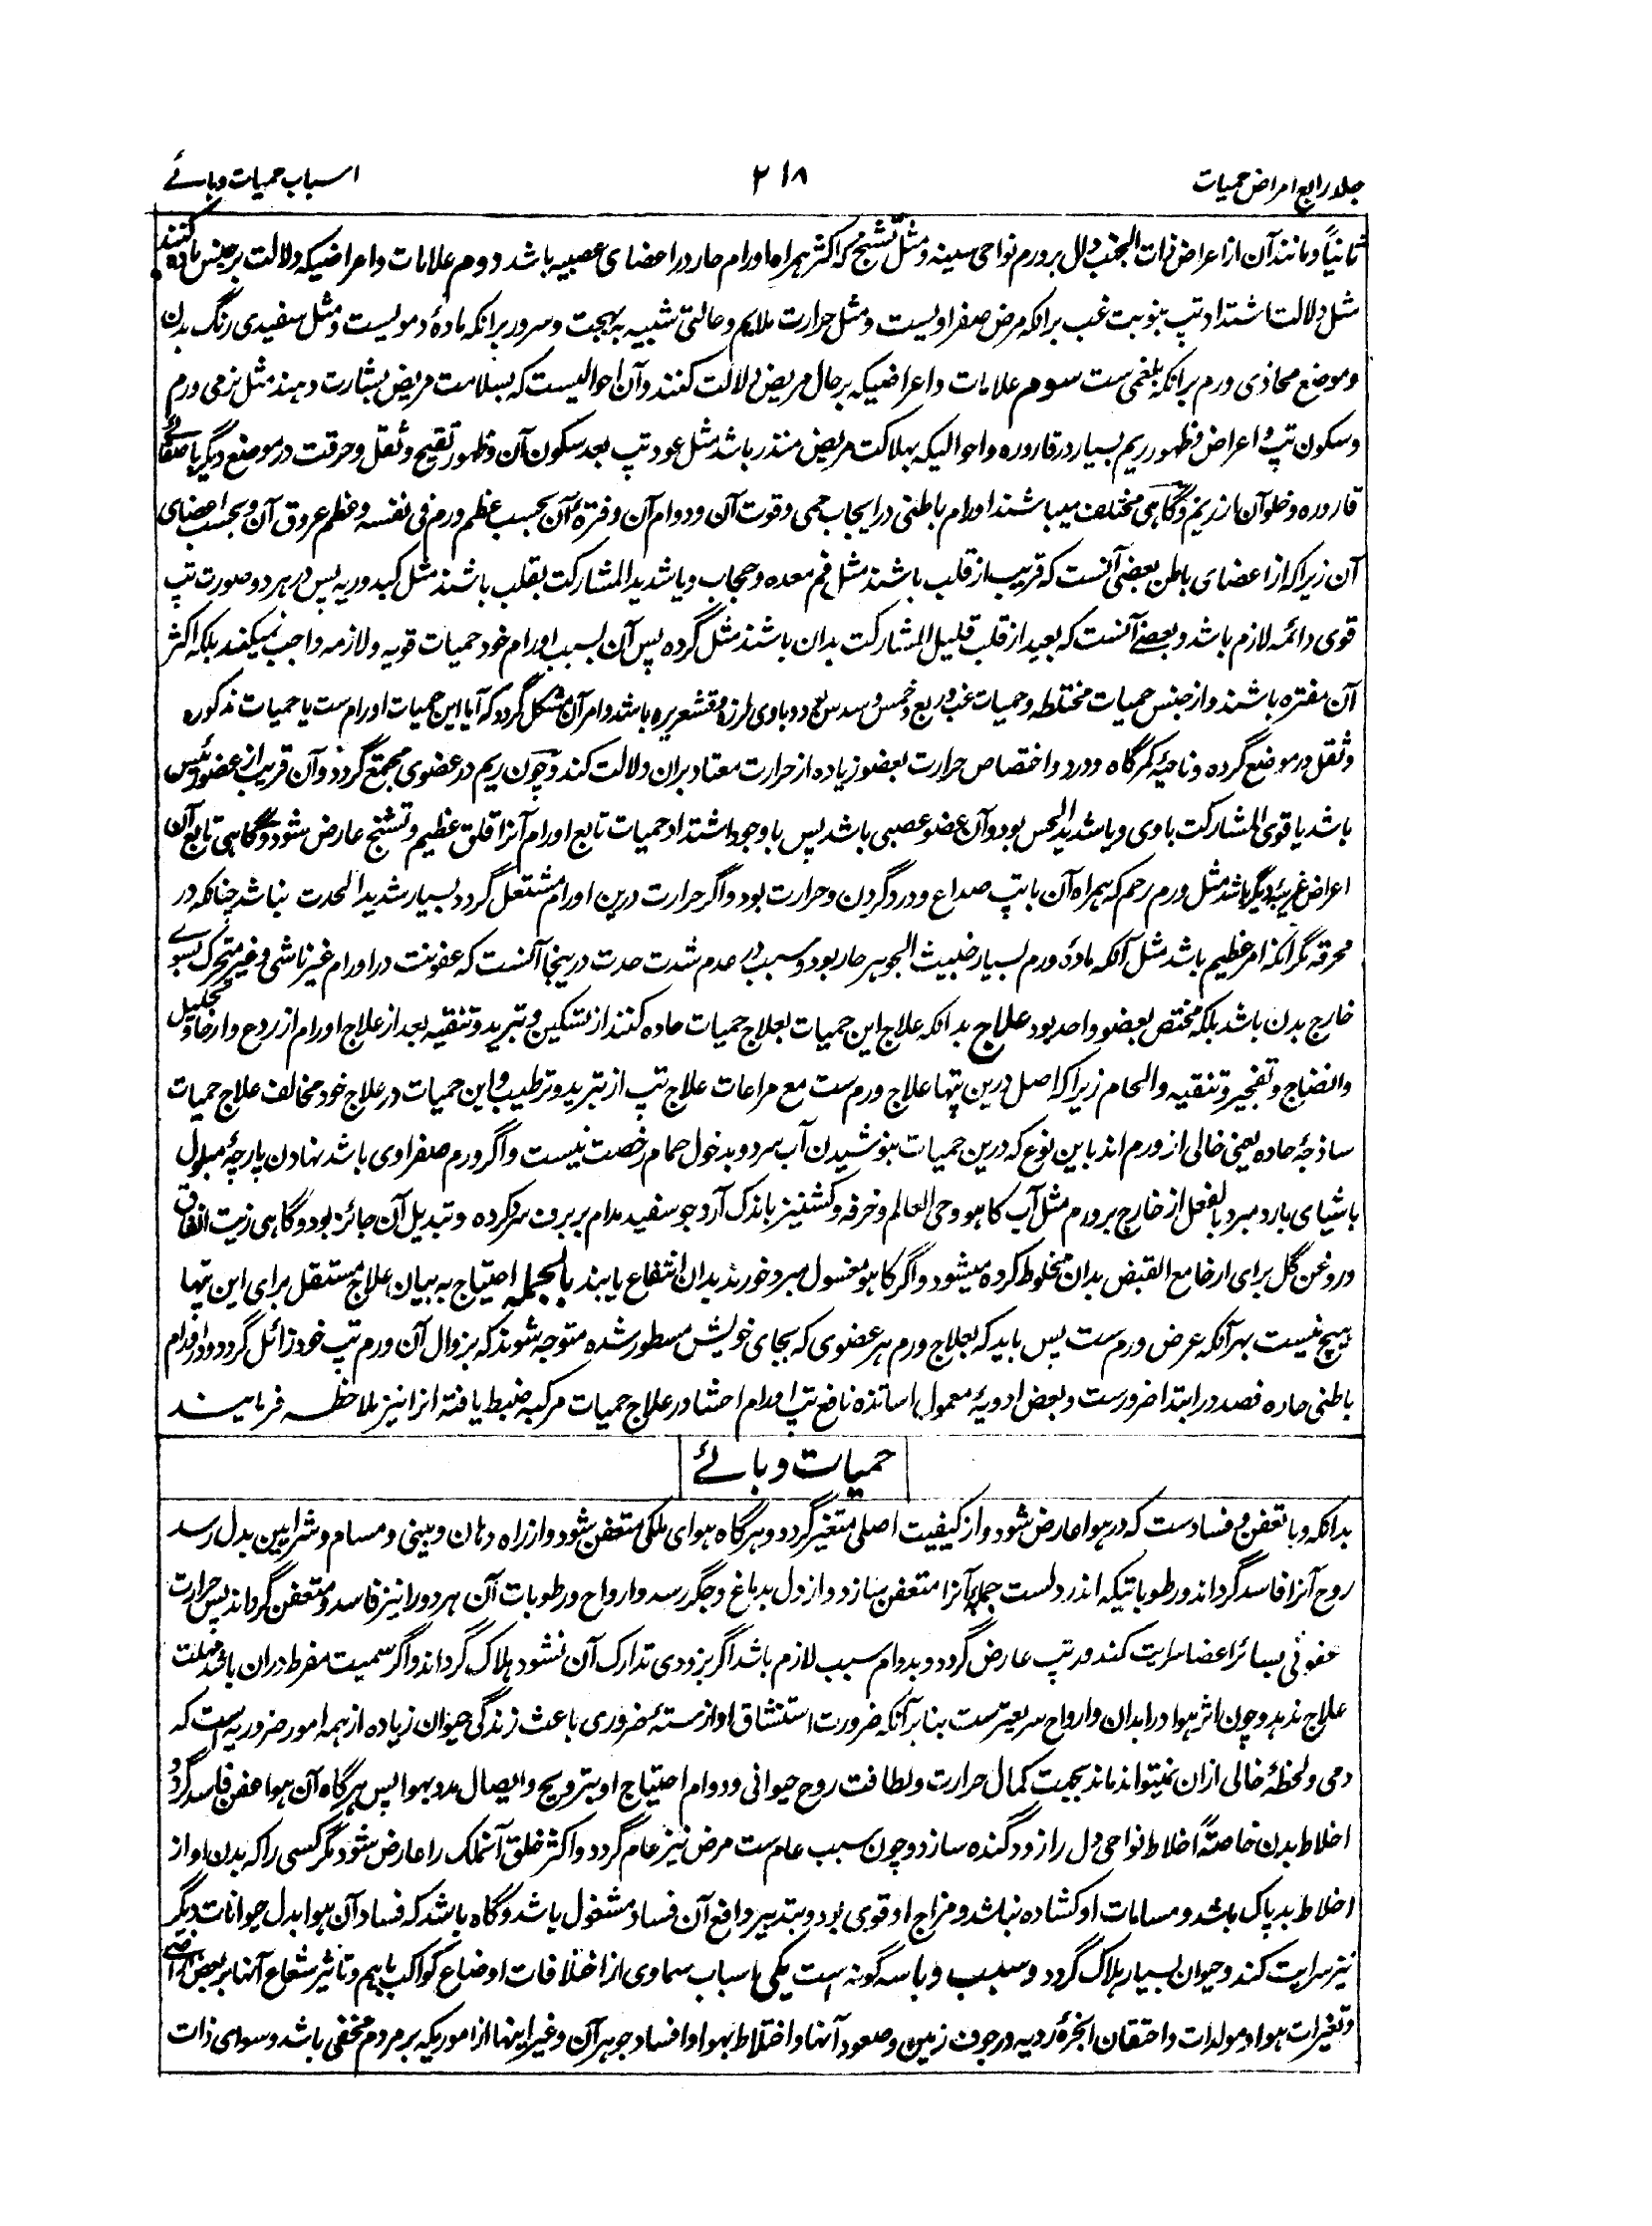 جلد رابع امراض حمیات
۲۱۸
اسباب حمیات وبائے
ثانیاً و مانند آن از اعراض ذات الجنب دال بر ورم نواحی سینه و مثل تشنج که اکثر همراه اورام حار در اعضای عصبیه باشد دوم علامات و اعراضیکه دلالت بر جنس ماده کنند
مثل دلالت اشتداد تپ بنوبت غب برانکه مرض صفراویست و مثل حرارت ملایم و حالتی شبیه به بهجت و سرور برانکه مادهٔ دمویست و مثل سفیدی رنگ بدن
و موضع محاذی ورم برانکه بلغمی ست سوم علامات و اعراضیکه بر حال مریض دلالت کنند و آن احوالیست که بسلامت مریض بشارت دهند مثل نرمی ورم
و سکون تپ و اعراض و ظهور ریم بسیار در قاروره و احوالیکه بهلاکت مریض منذر باشد مثل عود تپ بعد سکون آن و ظهور تقیح و ثقل و حرقت در موضع دیگر یا صفائے
قاروره و خلو آن از ریم و گاهی مختلف میباشند اورام باطنی در ایجاب حمی و قوت آن و دوام آن و فترهٔ آن بحسب عظم ورم فی نفسه و عظم عروق آن و بحسب اعضای
آن زیرا که از اعضای باطن بعضی آنست که قریب از قلب باشند مثل فم معده و حجاب و یا شدید المشارکت بقلب باشند مثل کبد و ریه پس در هر دو صورت تپ
قوی دائمه لازم باشد و بعضے آنست که بعید از قلب قلیل المشارکت بدان باشند مثل گرده پس آن بسبب اورام خود حمیات قویه و لازمه واجب نمیکند بلکه اکثر
آن مفتره باشند و از جنس حمیات مختلطه و حمیات غب و ربع و خمس و سدس بود و باوی لرزه و قشعریره باشد و امر آن مشکل گردد که آیا این حمیات اورام ست یا حمیات مذکوره
و ثقل در موضع گرده و ناحیهٔ کمرگاه و درد و اختصاص حرارت بعضو زیاده از حرارت معتاد بران دلالت کند و چون ریم در عضوی مجتمع گردد و آن قریب از عضو رئیس
باشد یا قوی المشارکت باوی و یا شدید الحس بود و آن عضو عصبی باشد پس با وجود اشتداد حمیات تابع اورام آنرا قلق عظیم و تشنج عارض شود و گاهی تابع آن
اعراض غریبهٔ دیگر باشد مثل ورم رحم که همراه آن باتپ صداع و درد گردن و حرارت بود و اگر حرارت درین اورام مشتعل گردد بسیار شدید الحدت نباشد چنانکه در
محرقه مگر آنکه امر عظیم باشد مثل آنکه مادهٔ ورم بسیار خبیث الجوهر حار بود و سبب در عدم شدت حدت درینجا آنست که عفونت در اورام غیر ناشی و غیر متحرک بسوے
خارج بدن باشد بلکه مختص بعضو واحد بود علاج بدانکه علاج این حمیات بعلاج حمیات حاده کنند از تسکین و تبرید و تنقیه بعد از علاج اورام از ردع و ارخا و تحلیل
و انضاج و تفجیر و تنقیه و الحام زیرا که اصل درین تپها علاج ورم ست مع مراعات علاج تپ از تبرید و ترطیب و این حمیات در علاج خود مخالف علاج حمیات
ساذجهٔ حاده یعنی خالی از ورم اند باین نوع که درین حمیات بنوشیدن آب سرد و بدخول حمام رخصت نیست و اگر ورم صفراوی باشد نهادن پارچهٔ مبلول
باشیای بارد مبرد بالفعل از خارج بر ورم مثل آب کاهو و حی العالم و خرفه و کشنیز باندک آرد جو سفید مدام بر برف سرد کرده و تبدیل آن جائز بود و گاهی زیت انفاق
و روغن گل برای ارخا مع القبض بدان مخلوط کرده میشود و اگر کاهو مغسول مبرد خورند بدان انتفاع یابند بالجمله احتیاج به بیان علاج مستقل برای این تپها
هیچ نیست بهر آنکه عرض ورم ست پس باید که بعلاج ورم هر عضوی که بجای خویش مسطور شده متوجه شوند که بزوال آن ورم تپ خود زائل گردد و در اورام
باطنی حاده فصد در ابتدا ضرورست و بعض ادویهٔ معمول اساتذه نافع تپ اورام احشا در علاج حمیات مرکبه ضبط یافته انرا نیز ملاحظه فرمایند
حمیات وبائے
بدانکه وبا تعفن و فسادست که در هوا عارض شود و از کیفیت اصلی متغیر گردد و هرگاه هوای ملکی متعفن شود و از راه دهان و بینی و مسام و شرایین بدل رسد
روح آنرا فاسد گرداند و رطوباتیکه اندر دلست جمله آنرا متعفن سازد و از دل بدماغ و جگر رسد و ارواح و رطوبات آن هر دو را نیز فاسد و متعفن گرداند پس حرارت
عفونی بسائر اعضا سرایت کند و تپ عارض گردد و بدوام سبب لازم باشد اگر بزودی تدارک آن نشود هلاک گرداند و اگر سمیت مفرط دران باشد مهلت
علاج ندهد و چون اثر هوا در ابدان و ارواح سریعترست بنابرآنکه ضرورت استنشاق او از ستهٔ ضروری باعث زندگی حیوان زیاده از همه امور ضروریه است که
دمی و لحظهٔ خالی ازان نمیتواند ماند بجهت کمال حرارت و لطافت روح حیوانی و دوام احتیاج او بترویح و ایصال مدد بهوا پس هرگاه آن هوا عفن و فاسد گردد
اخلاط بدن خاصةً اخلاط نواحی دل را زود گنده سازد و چون سبب عام ست مرض نیز عام گردد و اکثر خلق آنملک را عارض شود مگر کسی را که بدن او از
اخلاط بد پاک باشد و مسامات او کشاده نباشد و مزاج او قوی بود و بتدبیر دافع آن فساد مشغول باشد و گاه باشد که فساد آن هوا بدل حیوانات دیگر
نیز سرایت کند و حیوان بسیار هلاک گردد و سبب وبا سه گونه است یکی اسباب سماوی از اختلافات اوضاع کواکب باهم و تاثیر شعاع آنها بر بعض اراضی
و تغیرات هوا و مولدات و احتقان ابخرهٔ ردیه در جوف زمین و صعود آنها و اختلاط بهوا و افساد جوهر آن و غیر اینها از اموریکه بر مردم مخفی باشد و سوای ذات